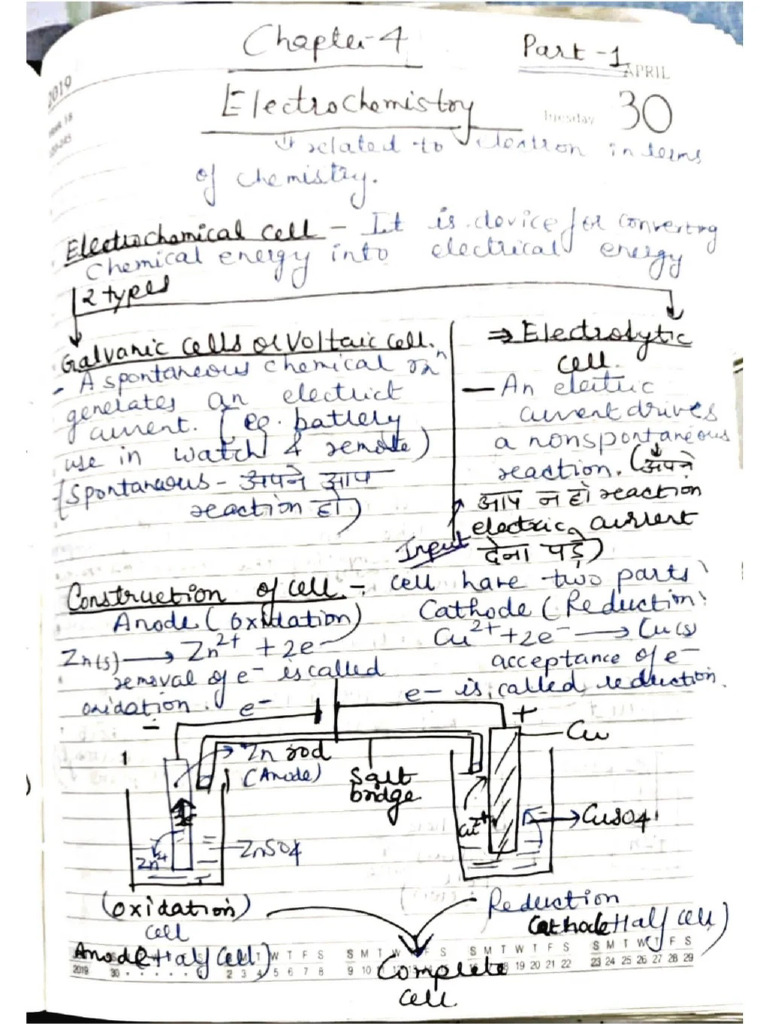 Chapter-4 Part-1
2019
APRIL
Electrochemistry Tuesday 30
related to electron in terms
of chemistry.
Electrochemical cell - It is device for converting
Chemical energy into electrical energy
2 types
Galvanic cells or Voltaic cell.
- A spontaneous chemical rxⁿ
generates an electrict
current. (eg. battery
use in watch & remote)
(Spontaneous - अपने आप
reaction हो)
⇒ Electrolytic
cell.
- An electric
current drives
a nonspontaneous
reaction. (अपने
आप न हो reaction
electric current
देना पड़े)
Input
Construction of cell - cell have two parts
Anode (oxidation) Cathode (Reduction)
Zn(s) → Zn²⁺ + 2e⁻ Cu²⁺ + 2e⁻ → Cu(s)
removal of e⁻ is called acceptance of e⁻
oxidation. e⁻ e⁻ is called reduction.
- +
Zn rod Cu
(Anode) Salt
bridge
Cu²⁺ CuSO4
Zn²⁺ ZnSO4
(oxidation) Reduction
cell Cathode Half cell)
Anode Half cell)
Complete
cell
2019 30 2 3 4 5 6 7 8 9 10 19 20 21 22 23 24 25 26 27 28 29